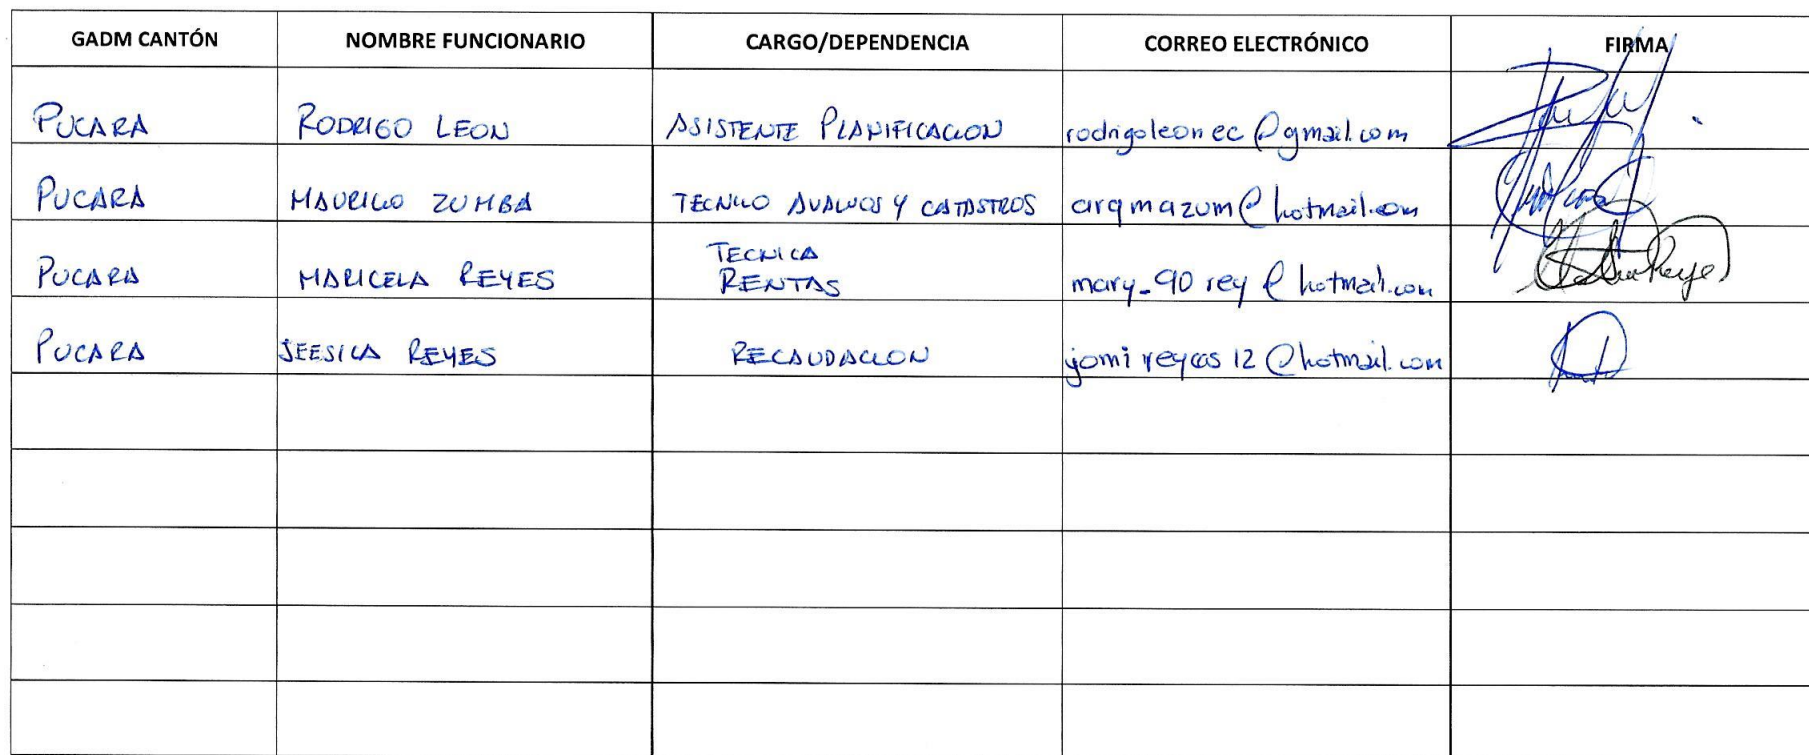 GADM CANTÓN NOMBRE FUNCIONARIO CARGO/DEPENDENCIA CORREO ELECTRÓNICO FIRMA
PUCARA RODRIGO LEON ASISTENTE PLANIFICACION rodrigoleonec@gmail.com
PUCARA MAURICIO ZUMBA TECNICO AVALUOS Y CATASTROS arqmazum@hotmail.com
PUCARA MARICELA REYES TECNICA
RENTAS mary_90rey@hotmail.com
PUCARA JEESICA REYES RECAUDACION jomireyes12@hotmail.com